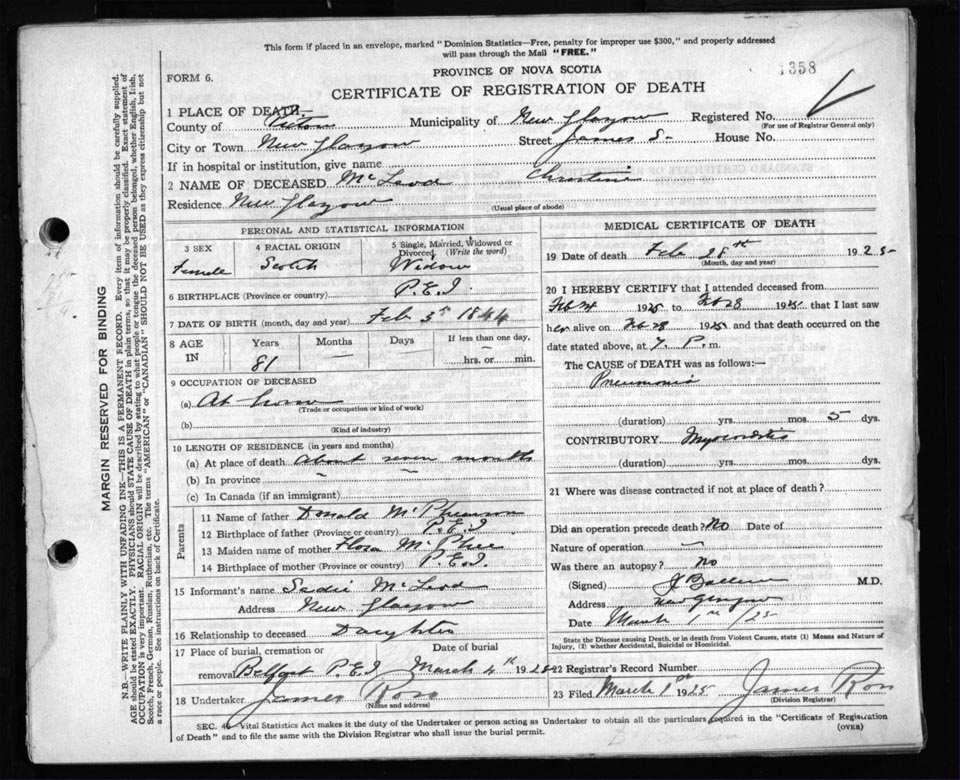 This form if placed in an envelope, marked "Dominion Statistics—Free, penalty for improper use $300," and properly addressed
will pass through the Mail "FREE."
PROVINCE OF NOVA SCOTIA
1358
FORM 6.
CERTIFICATE OF REGISTRATION OF DEATH
1 PLACE OF DEATH—
County of Pictou Municipality of New Glasgow Registered No.
(For use of Registrar General only)
City or Town New Glasgow Street James St House No.
If in hospital or institution, give name
2 NAME OF DECEASED McLeod Christine
Residence New Glasgow (Usual place of abode)
PERSONAL AND STATISTICAL INFORMATION
3 SEX 4 RACIAL ORIGIN 5 Single, Married, Widowed or Divorced (Write the word)
Female Scotch Widow
6 BIRTHPLACE (Province or country) P.E.I
7 DATE OF BIRTH (month, day and year) Feb 3rd 1844
8 AGE IN Years Months Days If less than one day,
81 — hrs. or min.
9 OCCUPATION OF DECEASED
(a) At home
(Trade or occupation or kind of work)
(b)
(Kind of industry)
10 LENGTH OF RESIDENCE (in years and months)
(a) At place of death About seven months
(b) In province
(c) In Canada (if an immigrant)
Parents
11 Name of father Donald McPherson
12 Birthplace of father (Province or country) P.E.I
13 Maiden name of mother Flora McPhee
14 Birthplace of mother (Province or country) P.E.I.
15 Informant's name Sadie McLeod
Address New Glasgow
16 Relationship to deceased Daughter
17 Place of burial, cremation or removal Date of burial
Belfast P.E.I March 4th 1925
18 Undertaker James Ross
(Name and address)
MEDICAL CERTIFICATE OF DEATH
19 Date of death Feb 28th 1925
(Month, day and year)
20 I HEREBY CERTIFY that I attended deceased from
Feb 24 1925 to Feb 28 1925, that I last saw
her alive on Feb 28 1925 and that death occurred on the
date stated above, at 7. P. m.
The CAUSE OF DEATH was as follows:—
Pneumonia
(duration) yrs. mos. 5 dys.
CONTRIBUTORY Myocarditis
(duration) yrs. mos. dys.
21 Where was disease contracted if not at place of death?
Did an operation precede death? No Date of
Nature of operation —
Was there an autopsy? No
(Signed) M.D.
Address New Glasgow
Date March 1st /25
State the Disease causing Death, or in death from Violent Causes, state (1) Means and Nature of
Injury, (2) whether Accidental, Suicidal or Homicidal.
22 Registrar's Record Number
23 Filed March 1st 1925 James Ross
(Division Registrar)
SEC. 4 Vital Statistics Act makes it the duty of the Undertaker or person acting as Undertaker to obtain all the particulars required in the "Certificate of Registration
of Death" and to file the same with the Division Registrar who shall issue the burial permit.
(OVER)
MARGIN RESERVED FOR BINDING
N.B.—WRITE PLAINLY WITH UNFADING INK—THIS IS A PERMANENT RECORD. Every item of information should be carefully supplied.
AGE should be stated EXACTLY. PHYSICIANS should STATE CAUSE OF DEATH in plain terms, so that it may be properly classified. Exact statement of
OCCUPATION is very important. RACIAL ORIGIN will be described by stating to what people or tongue the deceased person belonged, whether English, Irish,
Scotch, French, German, Russian, Ruthenian, etc. The terms "AMERICAN" or "CANADIAN" SHOULD NOT BE USED as they express citizenship but not
a race or people. See instructions on back of Certificate.